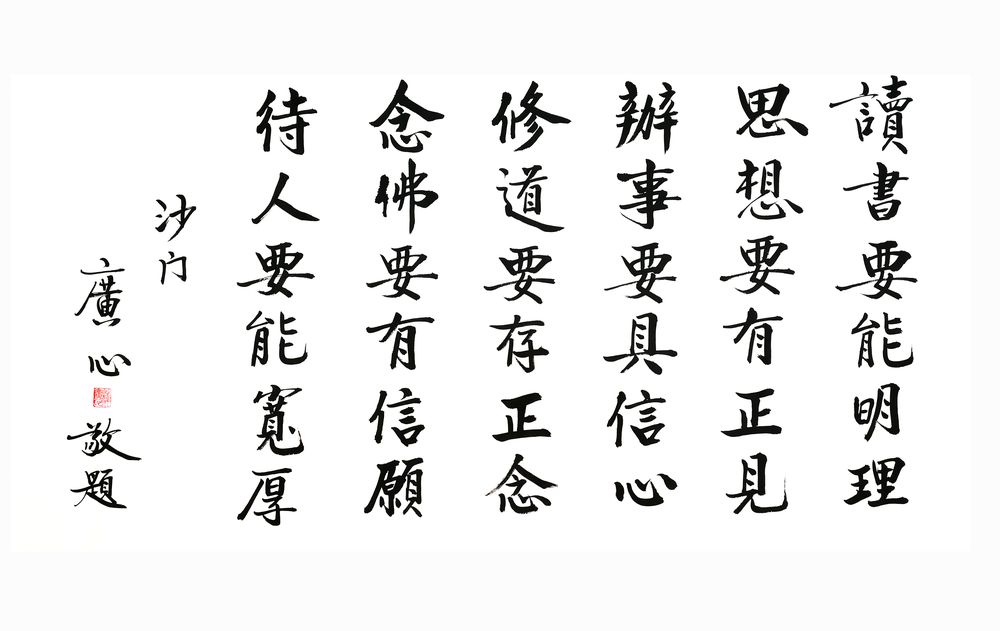 讀書要能明理
思想要有正見
辦事要具信心
修道要存正念
念佛要有信願
待人要能寬厚
沙门
廣心
敬題